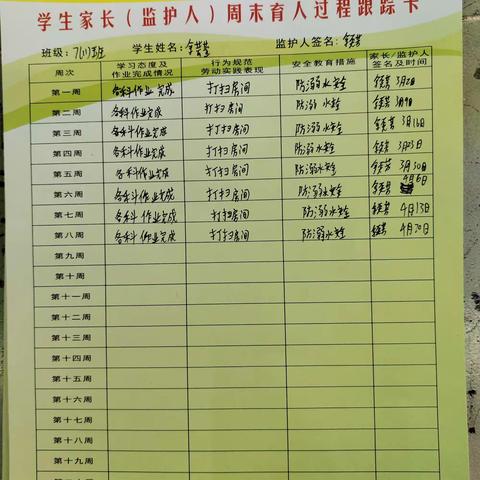 学生家长（监护人）周末育人过程跟踪卡
班级：7(1)班 学生姓名： 监护人签名：
周次 学习态度及作业完成情况 行为规范劳动实践表现 安全教育措施 家长/监护人签名及时间
第一周 各科作业完成 打扫房间 防溺水安全 3月2日
第二周 各科作业完成 打扫房间 防溺水安全 3月9日
第三周 各科作业完成 打扫房间 防溺水安全 3月16日
第四周 各科作业完成 打扫房间 防溺水安全 3月23日
第五周 各科作业完成 打扫房间 防溺水安全 3月30日
第六周 各科作业完成 打扫房间 防溺水安全 4月6日
第七周 各科作业完成 打扫房间 防溺水安全 4月13日
第八周 各科作业完成 打扫房间 防溺水安全 4月20日
第九周
第十周
第十一周
第十二周
第十三周
第十四周
第十五周
第十六周
第十七周
第十八周
第十九周